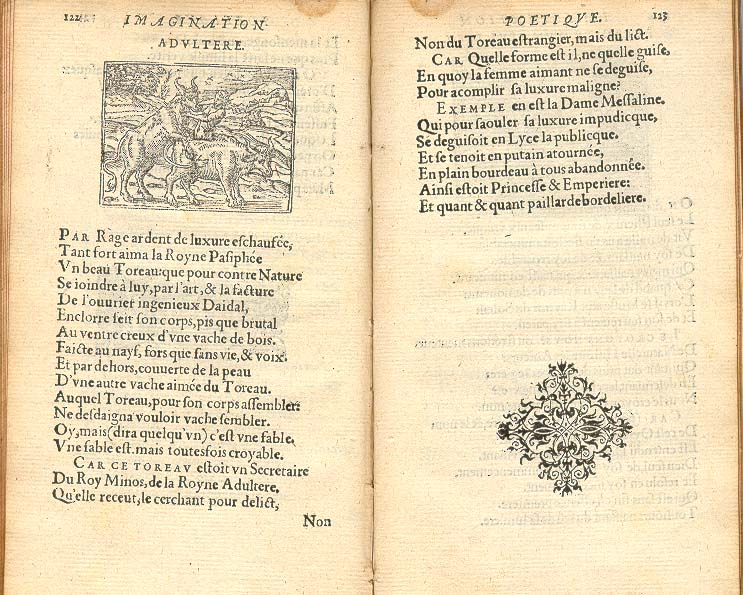 122
IMAGINATION
ADVLTERE.
PAR Rage ardent de luxure eschaufée,
Tant fort aima la Royne Pasiphée
Vn beau Toreau: que pour contre Nature
Se ioindre à luy, par l'art, & la facture
De l'ouurier ingenieux Daidal,
Enclorre feit son corps, pis que brutal
Au ventre creux d'vne vache de bois.
Faicte au nayf, fors que sans vie, & voix.
Et par dehors, couuerte de la peau
D'vne autre vache aimée du Toreau.
Auquel Toreau, pour son corps assembler:
Ne desdaigna vouloir vache sembler.
Oy, mais (dira quelqu'vn) c'est vne fable.
Vne fable est. mais toutesfois croyable.
CAR CE TOREAV estoit vn Secretaire
Du Roy Minos, de la Royne Adultere.
Qu'elle receut, le cerchant pour delict,
Non
POETIQVE.
123
Non du Toreau estrangier, mais du lict.
CAR Quelle forme est il, ne quelle guise,
En quoy la femme aimant ne se deguise,
Pour acomplir sa luxure maligne?
EXEMPLE en est la Dame Messaline.
Qui pour saouler sa luxure impudicque,
Se deguisoit en Lyce la publicque.
Et se tenoit en putain atournée,
En plain bourdeau à tous abandonnée.
Ainsi estoit Princesse & Emperiere:
Et quant & quant paillarde bordeliere.